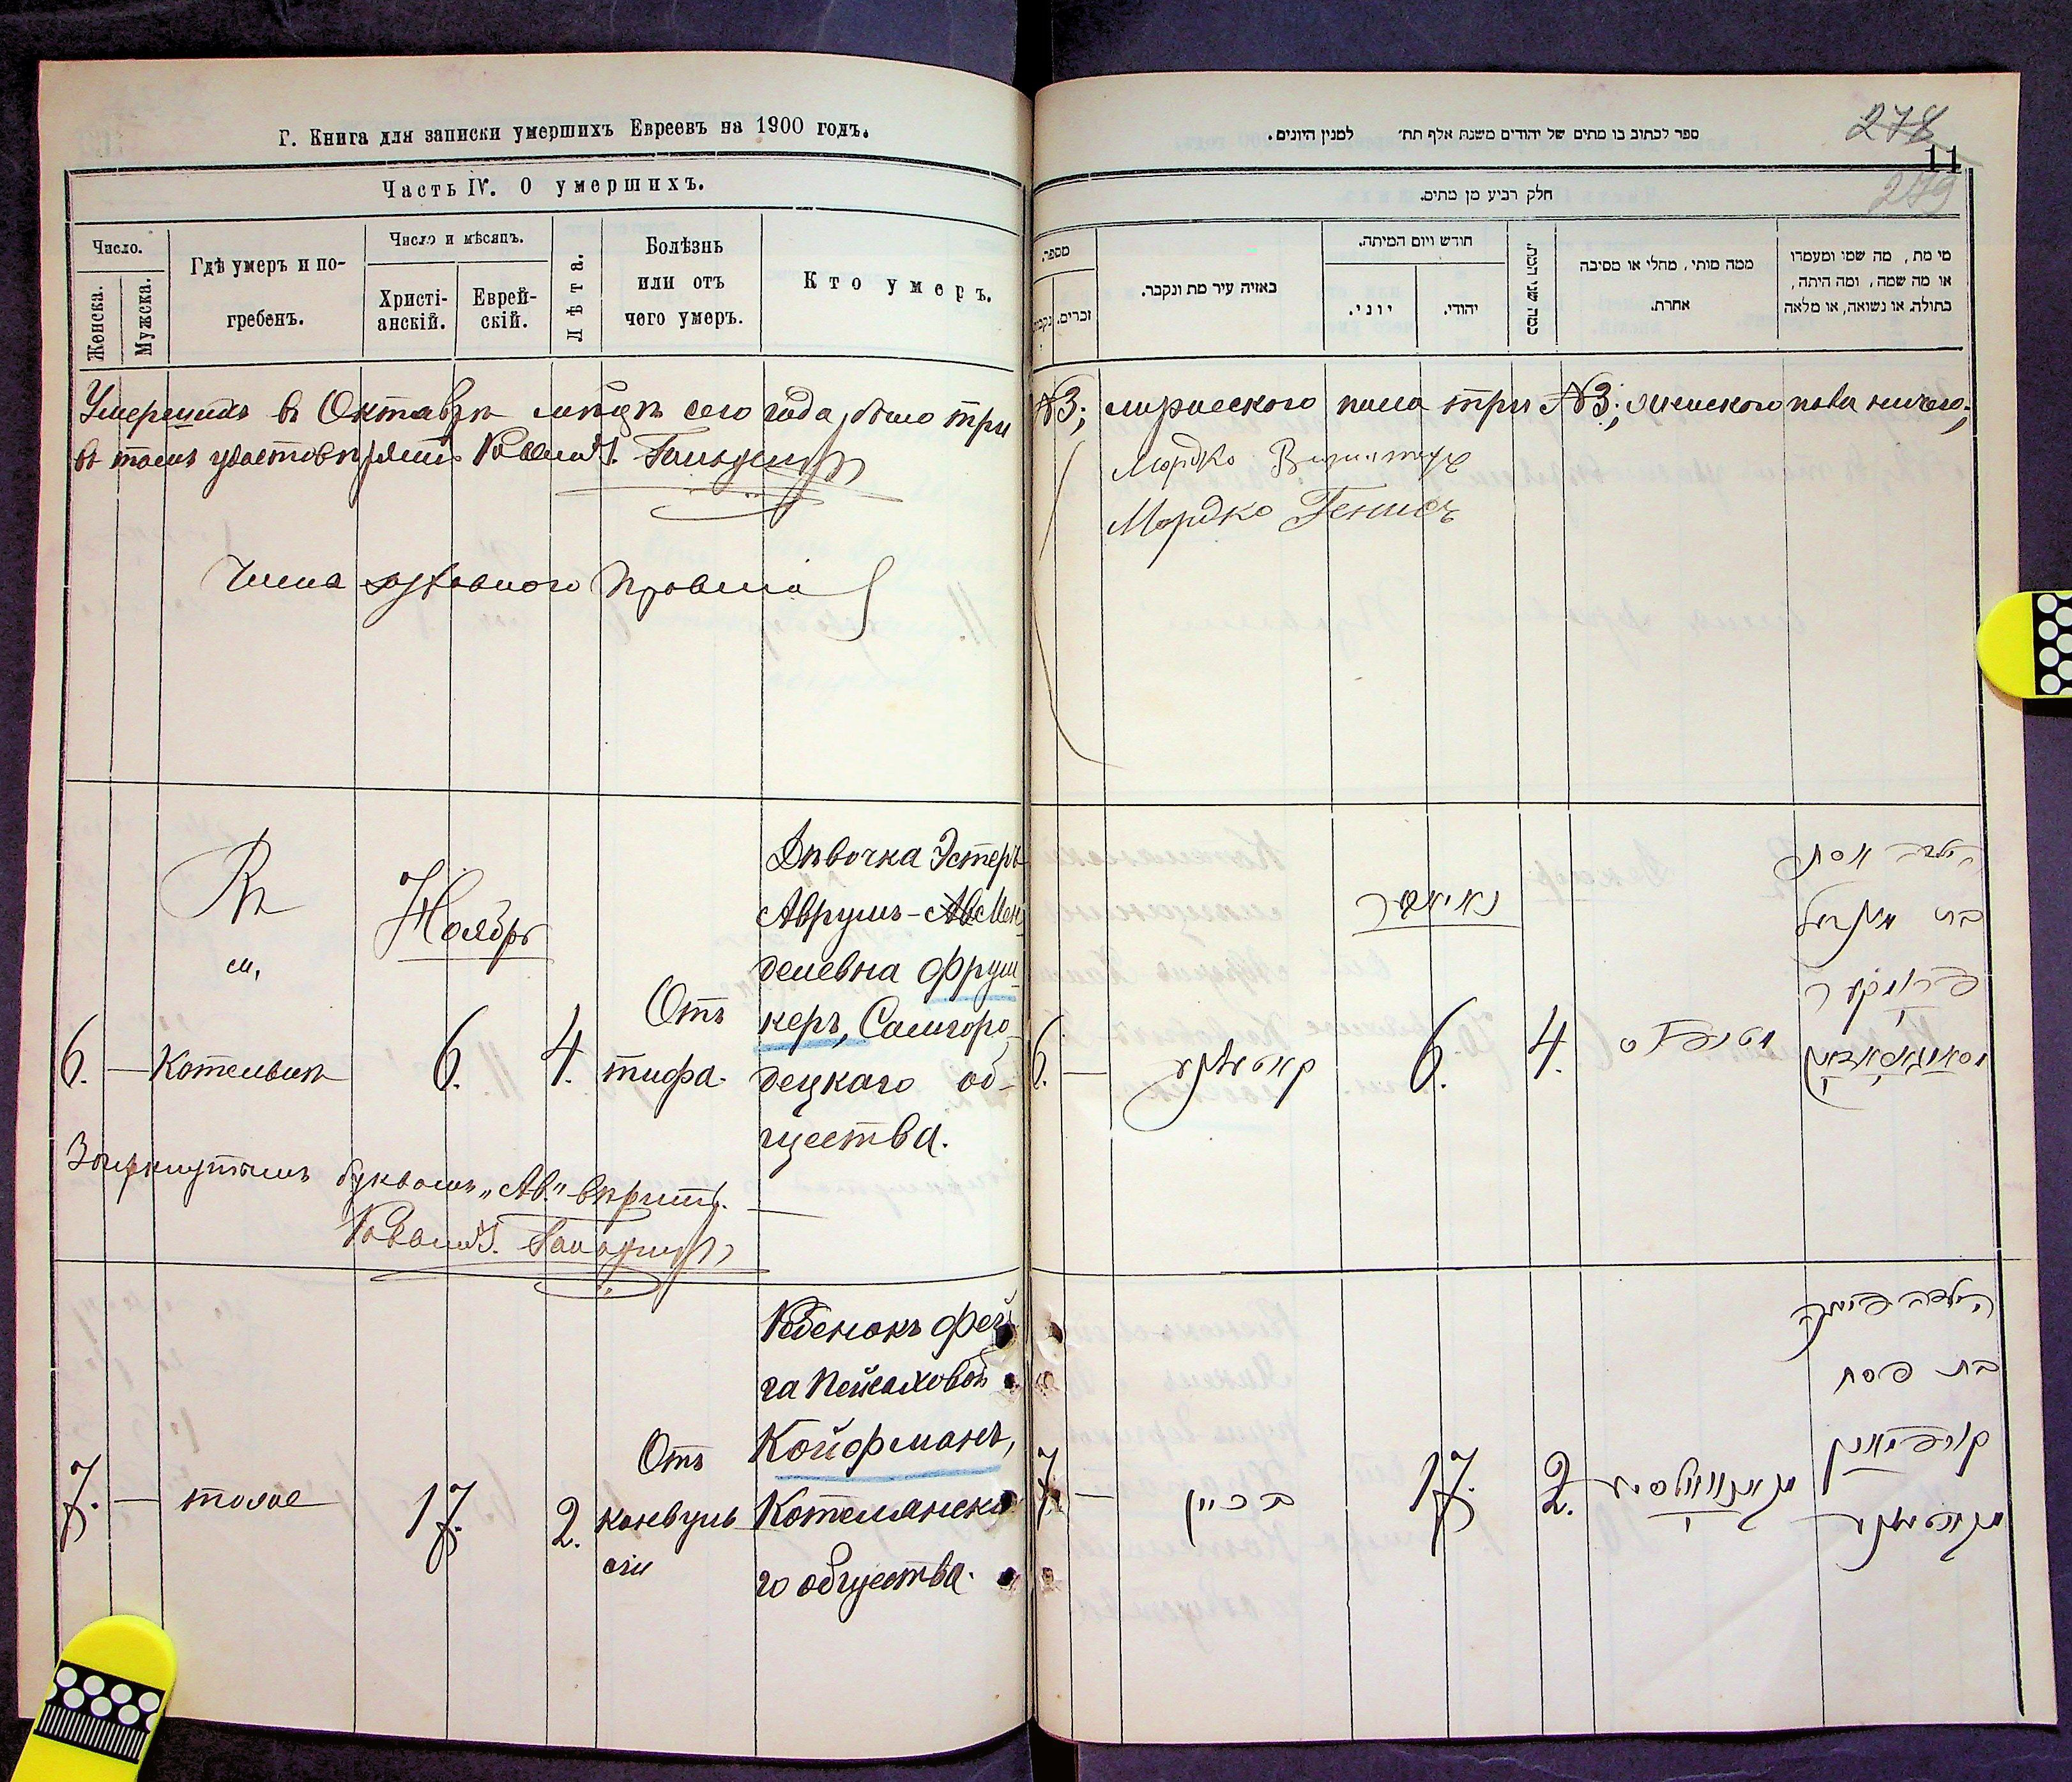 Г. Книга для записки умершихъ Евреевъ на 1900 годъ.
Часть IV. О умершихъ.
Число.
Женска.
Мужска.
Гдѣ умеръ и по-
гребенъ.
Число и мѣсяцъ.
Христі-
анскій.
Еврей-
скій.
Лѣта.
Болѣзнь
или отъ
чего умеръ.
Кто умеръ.
Умершихъ въ Октябрѣ мѣсяцѣ сего года было три
въ томъ удостовѣряетъ Раввинъ
Члена духовного Правленія
Въ
м.
Котельнѣ
Ноябрь
6.
—
6.
4.
Отъ
тифа.
Дѣвочка Эстеръ
Аврумъ-Ав Мен
делевна Фрум
керъ, Самгоро-
децкаго об-
щества.
Зачеркнутымъ буквамъ „Ав." вѣрить.
Раввинъ
7.
—
тоже
17.
2.
Отъ
конвуль
сіи
Ребенокъ Фей
га Пейсаховой
Койфманъ,
Котелянска
го общества.
ספר לכתוב בו מתים של יהודים משנת אלף תת׳ למנין היונים.
278
11
279
חלק רביע מן מתים.
מספר.
נקבות
זכרים.
באיזה עיר מת ונקבר.
חודש ויום המיתה.
יוני.
יהודי.
כמה שני חכת.
ממה מותו, מחלי או מסיבה
אחרת.
מי מת, מה שמו ומעמדו
או מה שמה, ומה היתה,
בתולה, או נשואה, או מלאה
№3; мужескаго пола три №3; женскаго пола ничего;
Мордко
Мордко Генисъ
6.
—
קאטעלנע
נאיאבר
6.
4.
הילדה אסתר
בת
פרומקער
7.
—
בכיין
17.
2.
הילדה פייגא
בת פסח
קויפמאן